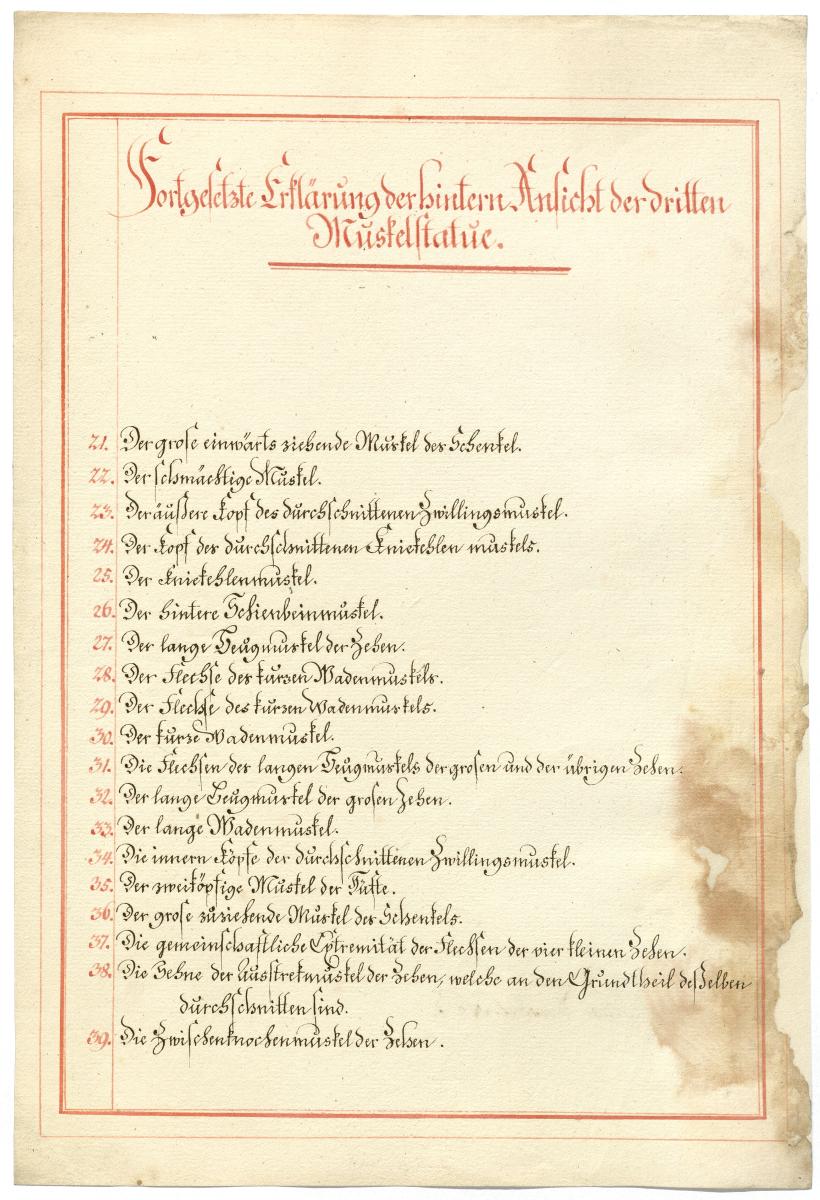 Fortgesetzte Erklärung der hintern Ansicht der dritten
Muskelstatue.
21. Der grose einwärts ziehende Muskel des Schenkel.
22. Der schmächtige Muskel.
23. Der äußere Kopf des durchschnittenen Zwillingsmuskel.
24. Der Kopf des durchschnittenen Kniekehlen muskels.
25. Der Kniekehlenmuskel.
26. Der hintere Schienbeinmuskel.
27. Der lange Beugmuskel der Zehen.
28. Der Flechse des kurzen Wadenmuskels.
29. Der Flechse des kurzen Wadenmuskels.
30. Der kurze Wadenmuskel.
31. Die Flechsen des langen Beugmuskels der grosen und der übrigen Zehen.
32. Der lange Beugmuskel der grosen Zehen.
33. Der lange Wadenmuskel.
34. Die innern Köpfe der durchschnittenen Zwillingsmuskel.
35. Der zweiköpfige Muskel der
36. Der grose zuziehende Muskel des Schenkels.
37. Die gemeinschaftliche Extremität der Flechsen der vier kleinen Zehen.
38. Die Sehne der Ausstrekmuskel der Zehen, welche an den Grundtheil deßelben
durchschnitten sind.
39. Die Zwischenknochenmuskel der Zehen.